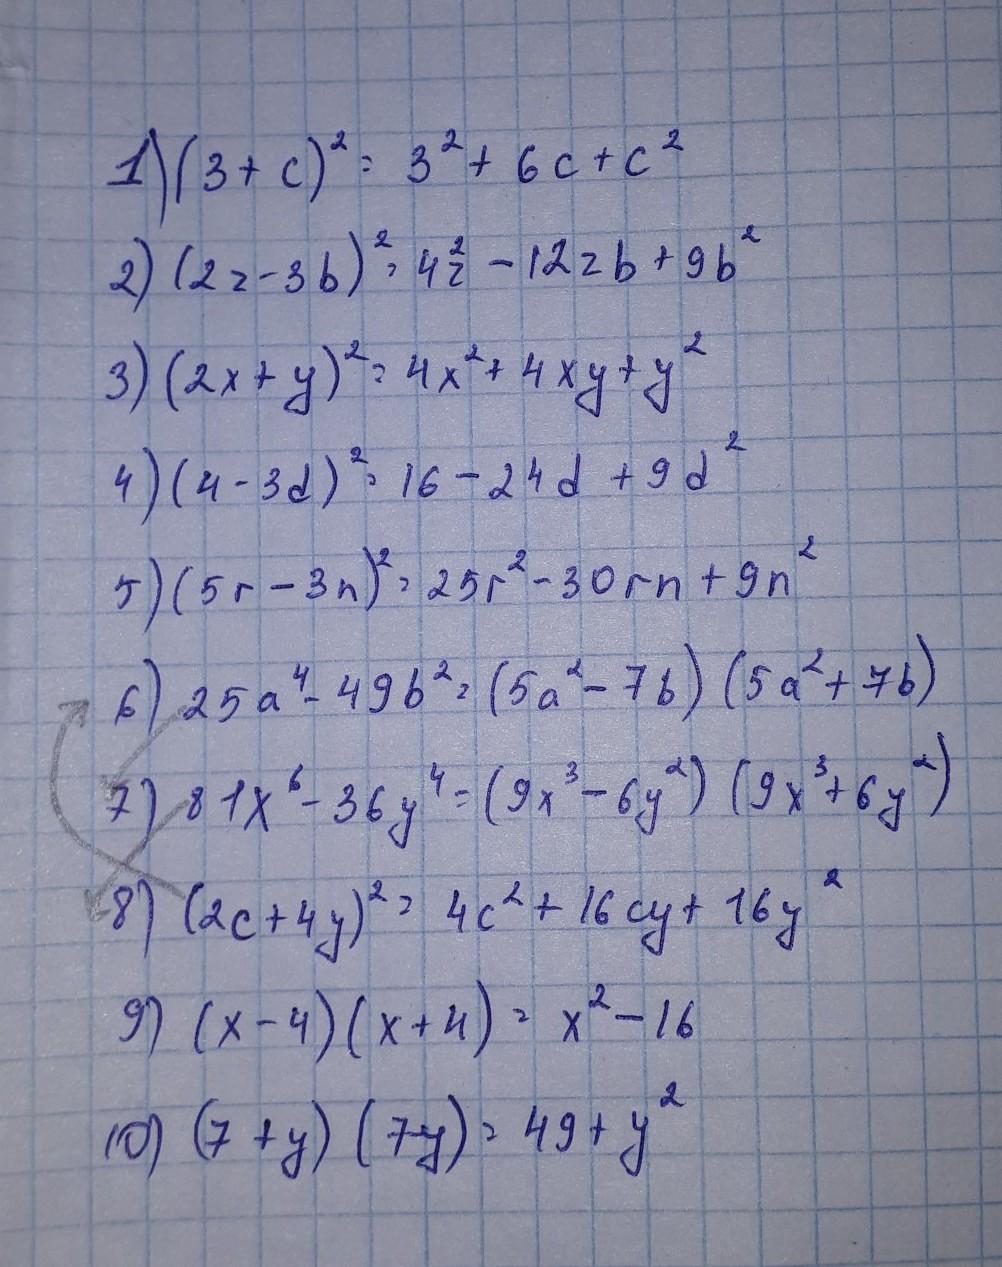 1) (3 + c)² = 3² + 6c + c²
2) (2z - 3b)² = 4z² - 12zb + 9b²
3) (2x + y)² = 4x² + 4xy + y²
4) (4 - 3d)² = 16 - 24d + 9d²
5) (5r - 3n)² = 25r² - 30rn + 9n²
6) 25a⁴ - 49b² = (5a² - 7b) (5a² + 7b)
7) 81x⁶ - 36y⁴ = (9x³ - 6y²) (9x³ + 6y²)
8) (2c + 4y)² = 4c² + 16cy + 16y²
9) (x - 4) (x + 4) = x² - 16
10) (7 + y) (7-y) = 49 + y²